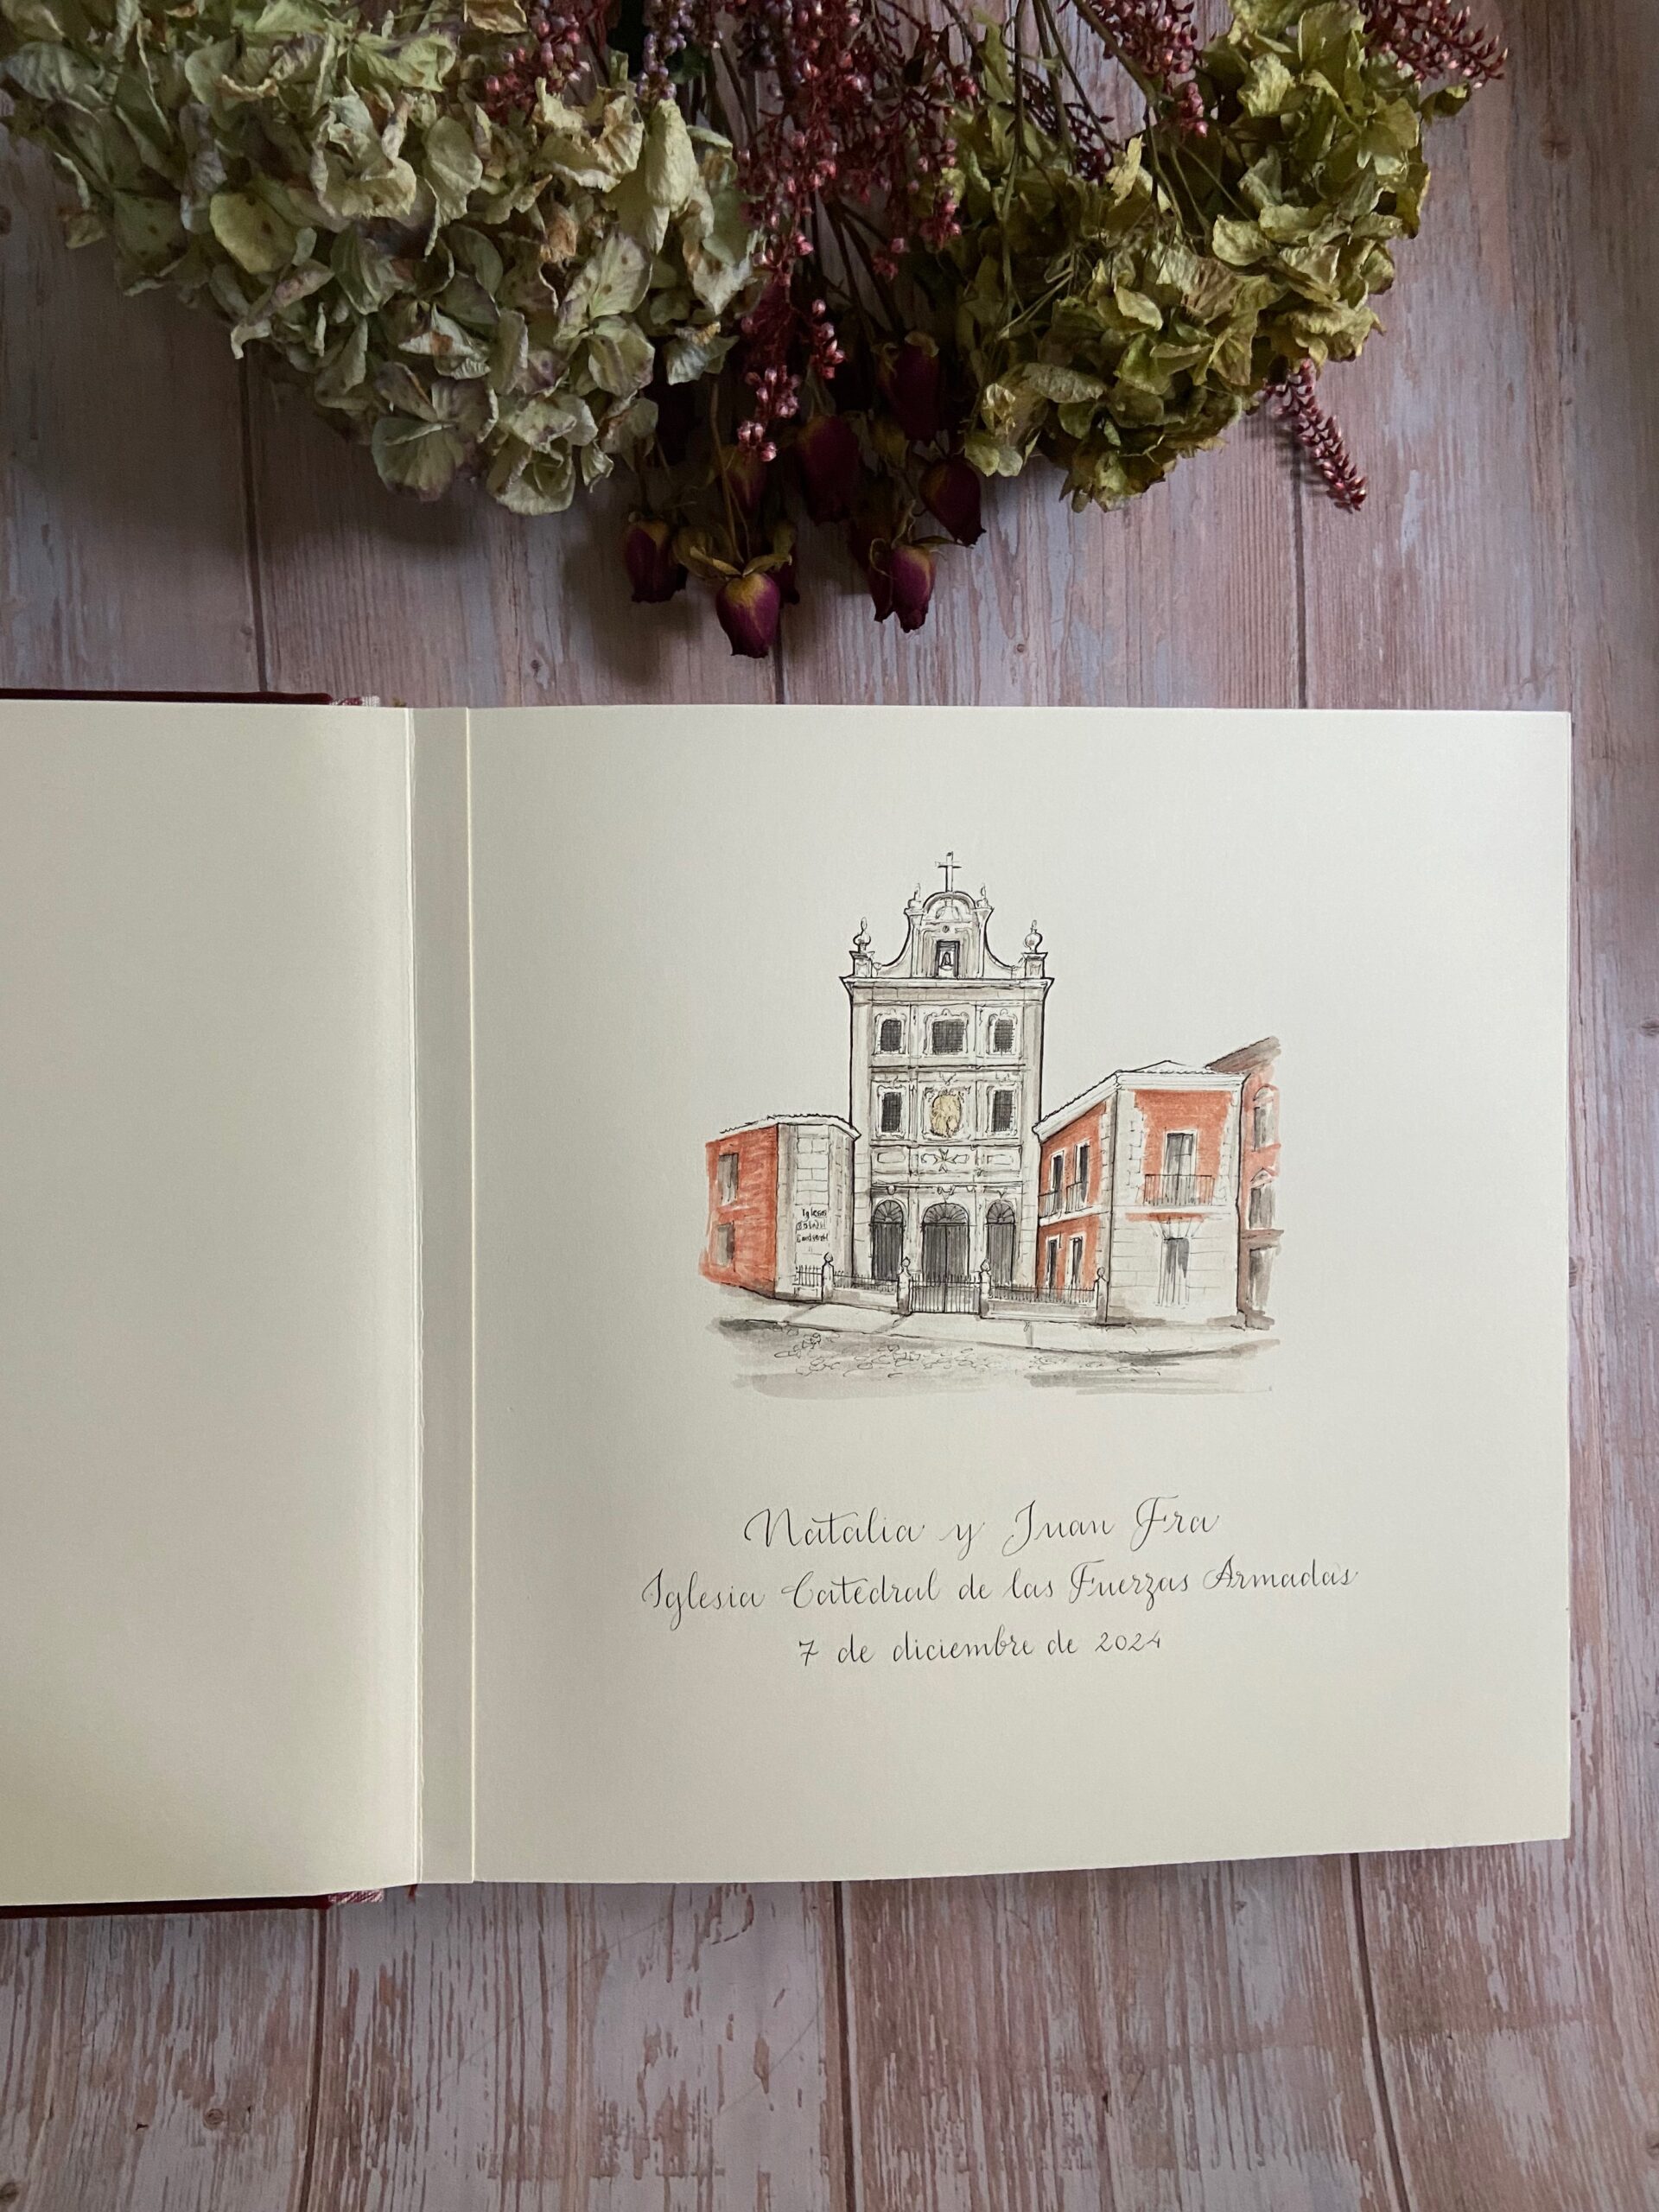 Iglesia
Natalia y Juan Fra
Iglesia Catedral de las Fuerzas Armadas
7 de diciembre de 2024